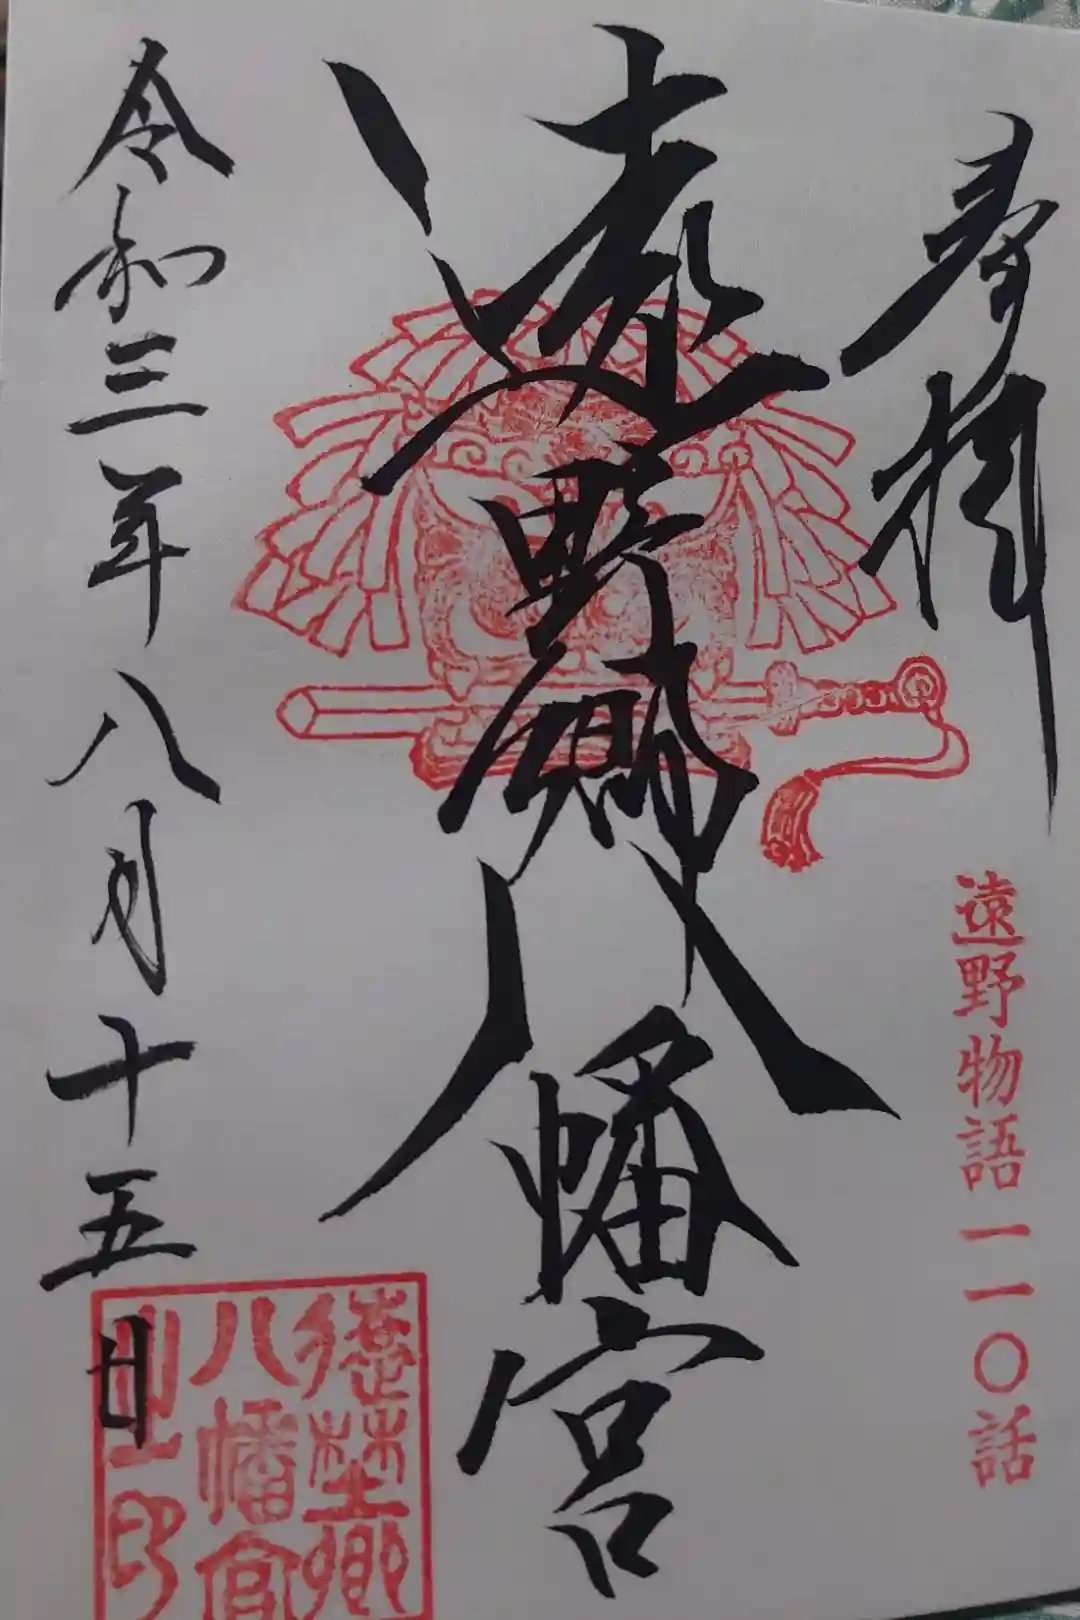 奉拝
遠野物語一一〇話
遠野郷八幡宮
令和三年八月十五日
遠野郷
八幡宮
之印